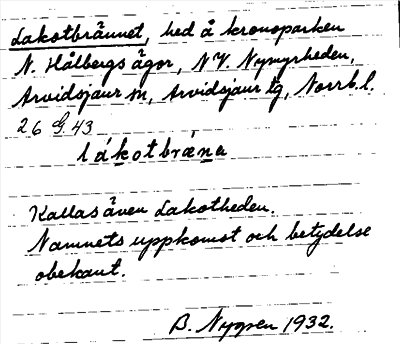 Lakotbrännet, hed å kronoparken
N. Hålbergs ägor, NV. Nymyrheden,
Arvidsjaur sn, Arvidsjaur tg, Norrb.l.
26 G.43
lákotbräna
Kallas även Lakotheden.
Namnets uppkomst och betydelse
obekant.
B. Nygren 1932.